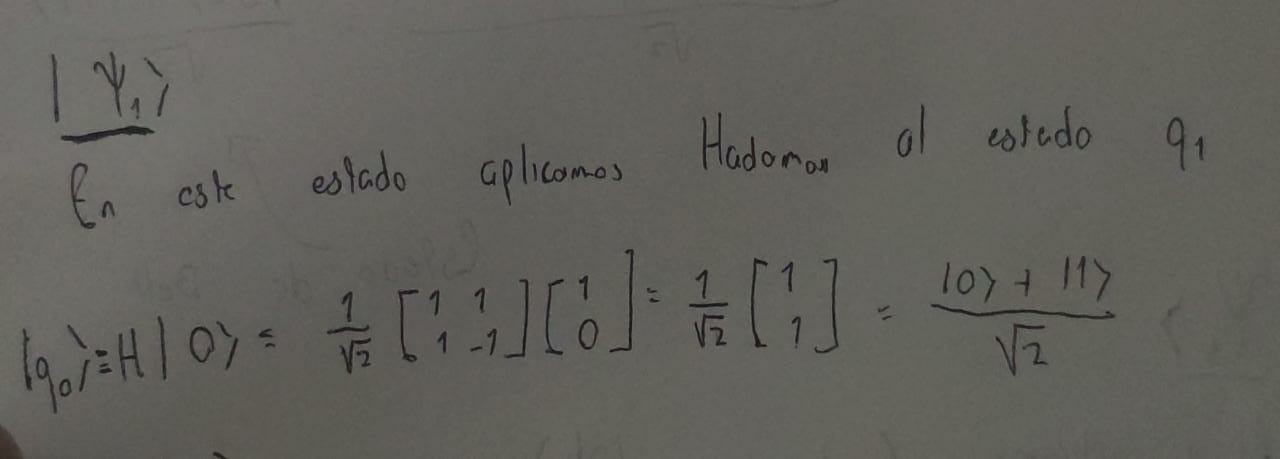 |Ψ₁⟩
En este estado aplicamos Hadaman al estado q₁
|q₀⟩=H|0⟩= 1/√2 [1 1; 1 -1] [1; 0] = 1/√2 [1; 1] = (|0⟩+|1⟩)/√2